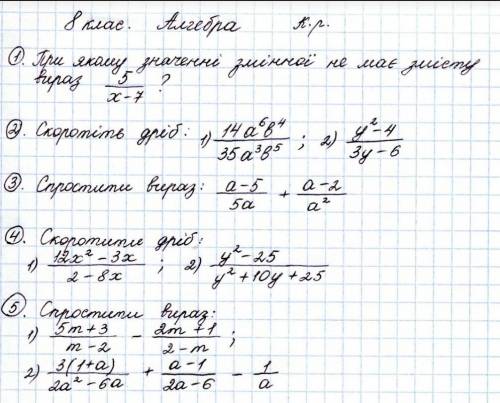 8 клас. Алгебра К.р.
①. При якому значенні змінної не має змісту
вираз 5/(x-7) ?
②. Скоротіть дріб: 1) 14a⁶b⁴/35a³b⁵ ; 2) (y²-4)/(3y-6)
③. Спростити вираз: (a-5)/5a + (a-2)/a²
④. Скоротити дріб:
1) (12x²-3x)/(2-8x) ; 2) (y²-25)/(y²+10y+25)
⑤. Спростити вираз:
1) (5m+3)/(m-2) - (2m+1)/(2-m) ;
2) 3(1+a)/(2a²-6a) + (a-1)/(2a-6) - 1/a